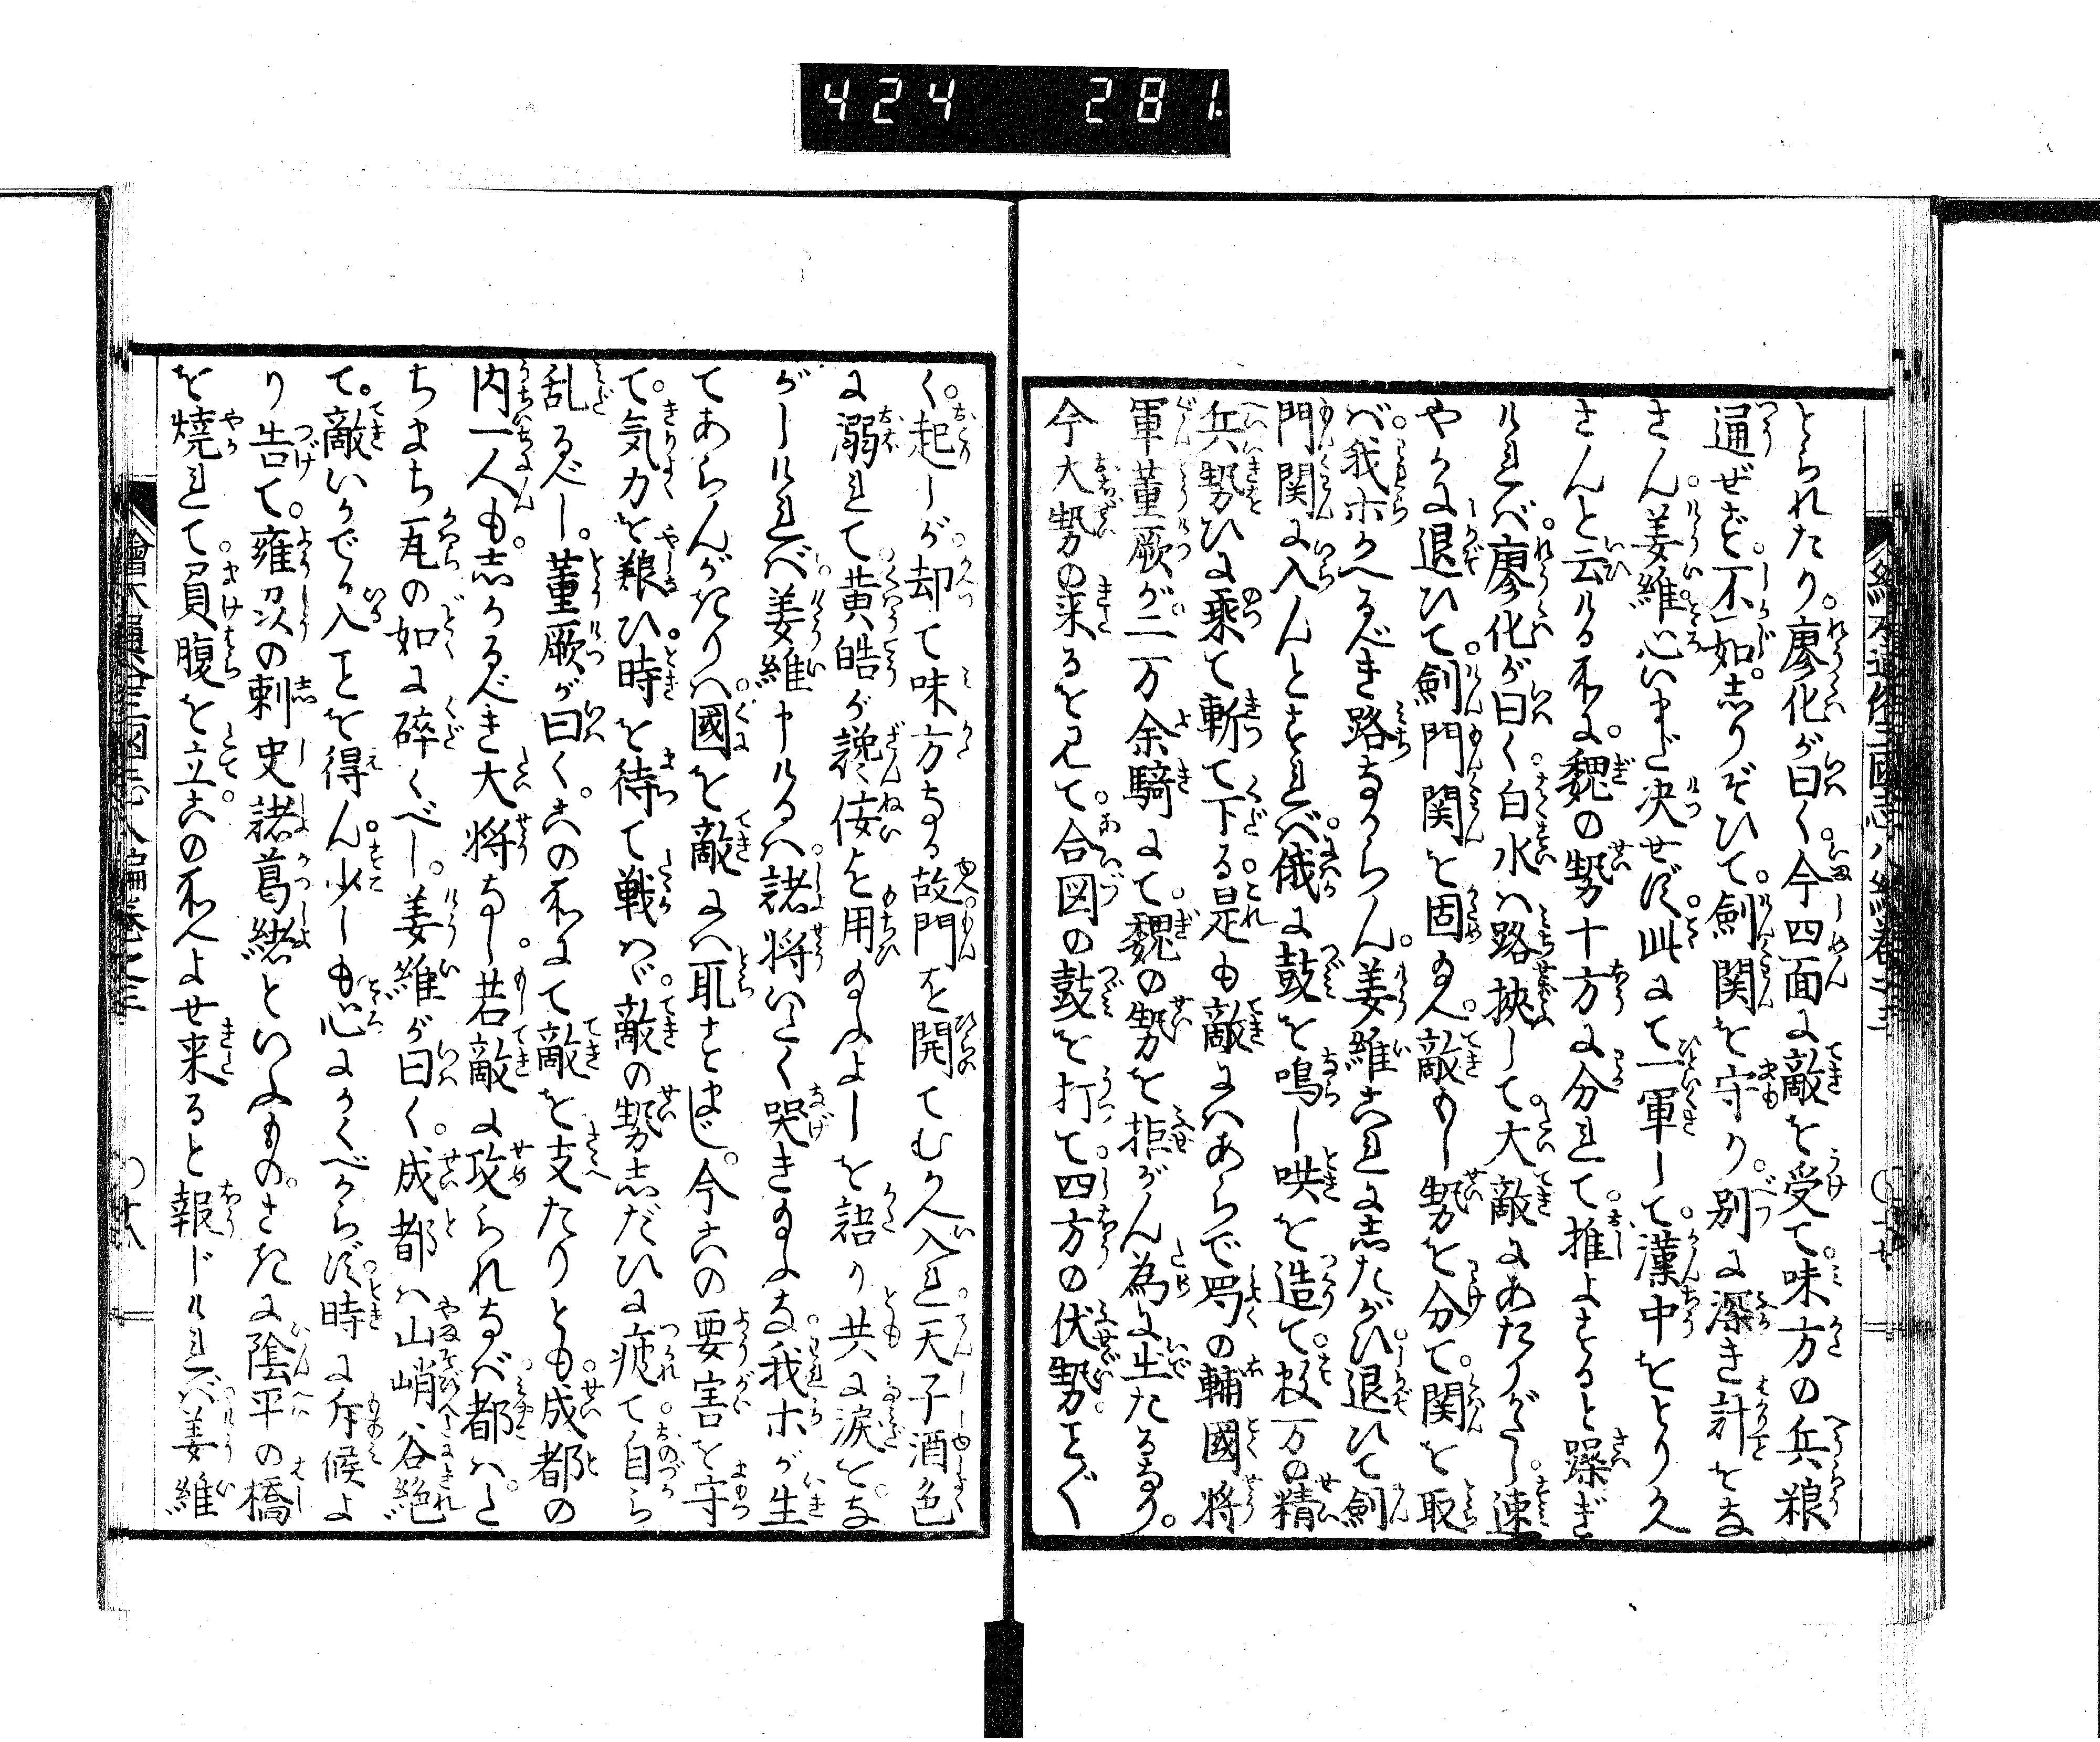 424 281
繪本通俗三國志八編巻之三
とられたり。廖化が曰く。今四面に敵を受て。味方の兵粮
通ぜず。不如。志りぞひて。劍関を守り。別に深き計をな
さん。姜維心いまだ決せず。此にて一軍して。漢中をとりか
さんと云ける所に。魏の勢十方に分れて。推よすると躁ぎ
ければ。廖化が曰く。白水ハ路挟して。大敵にあたりがたし。速
やかに退ひて。劍門関を固め給へ。敵もし勢を分て。関を取
バ。我ホかへるべき路なからん。姜維これに志たがひ。退ひて劍
門関に入んとすれバ。俄に鼓を鳴し哄を造て。数万の精
兵勢ひに乗て斬て下る。是も敵にハあらで。蜀の輔國将
軍董厥が。二万余騎にて。魏の勢を拒がん為に出たるなり。
今大勢の来るを見て。合図の鼓を打て。四方の伏勢こと〲
く。起しが。却て味方なる故。門を開てむかへ入れ。天子酒色
に溺れて。黄皓が讒佞を用給ふよしを語り。共に涙をな
がしければ。姜維申けるハ。諸将いたく哭き給ふな。我ホが生
てあらんかぎりハ。國を敵にハ取さすまじ。今この要害を守
て。気力を粮ひ。時を待て戦ハヾ。敵の勢志だひに疲て。自ら
乱るべし。董厥が曰く。この所にて敵を支たりとも。成都の
内一人も。志かるべき大将なし。若敵に攻られなバ。都ハ。た
ちまち瓦の如に碎くべし。姜維が曰く。成都ハ山峭谷絶
て。敵いかでか入ことを得ん。少しも心にかくべからず。時に斥候よ
り告て。雍州の刺史諸葛緒といふもの。さきに陰平の橋
を燒れて。負腹を立。この所へよせ来ると報じければ。姜維
繪本通俗三國志八編巻之三
〇廿八